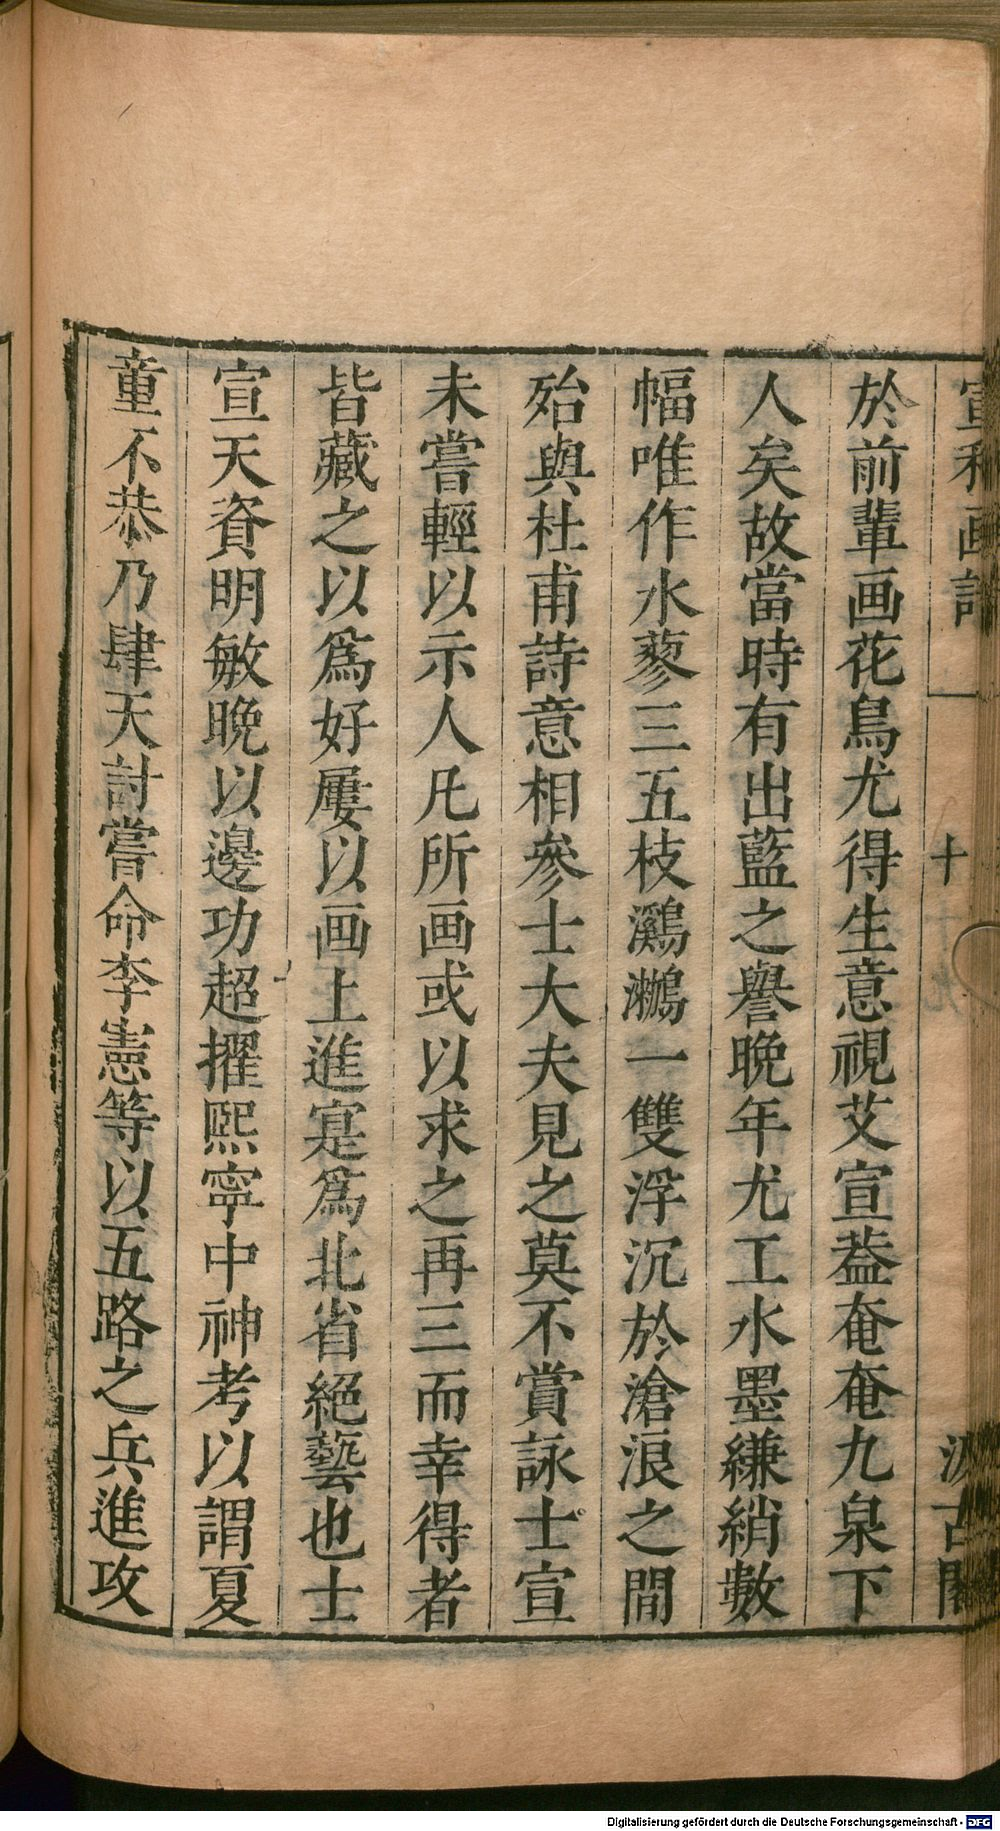 宣和画譜 十 汲古閣
於前輩画花鳥尤得生意視艾宣葢奄奄九泉下
人矣故當時有出藍之譽晩年尤工水墨縑綃數
幅唯作水蓼三五枝鸂鶒一雙浮沉於滄浪之間
殆與杜甫詩意相參士大夫見之莫不賞詠士宣
未嘗輕以示人凡所画或以求之再三而幸得者
皆藏之以為好屢以画上進寔為北省絕藝也士
宣天資明敏晚以邊功超擢熙寧中神考以謂夏
童不恭乃肆天討嘗命李憲等以五路之兵進攻
Digitalisierung gefördert durch die Deutsche Forschungsgemeinschaft - DFG